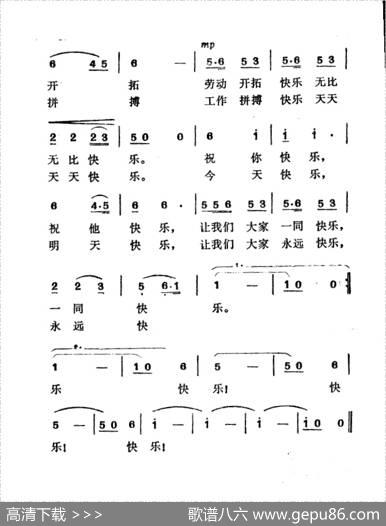 mp
6 4 5 | 6 — | 5·6 5 3 | 5·6 5 3 |
开 拓 劳动 开拓 快乐 无比
拼 搏 工作 拼搏 快乐 天天
2 2 2 3 | 5 0 0 | 6 i | i i· |
无 比 快 乐。 祝 你 快 乐,
天 天 快 乐。 今 天 快 乐,
6 4·5 | 6 6· | 5 5 6 5 3 | 5·6 5 3 |
祝 他 快 乐, 让我们 大家 一同 快乐,
明 天 快 乐, 让我们 大家 永远 快乐,
2 2 3 | 5 6·1 | i — | i 0 0 :|
一 同 快 乐。
永 远 快
1 — | i 0 6 | 5 — | 5 0 6 |
乐 快 乐! 快
5 — | 5 0 6 | i — | i — | i — | i 0 0 ‖
乐! 快 乐!
高清下载 >>>
歌谱八六 www.gepu86.com